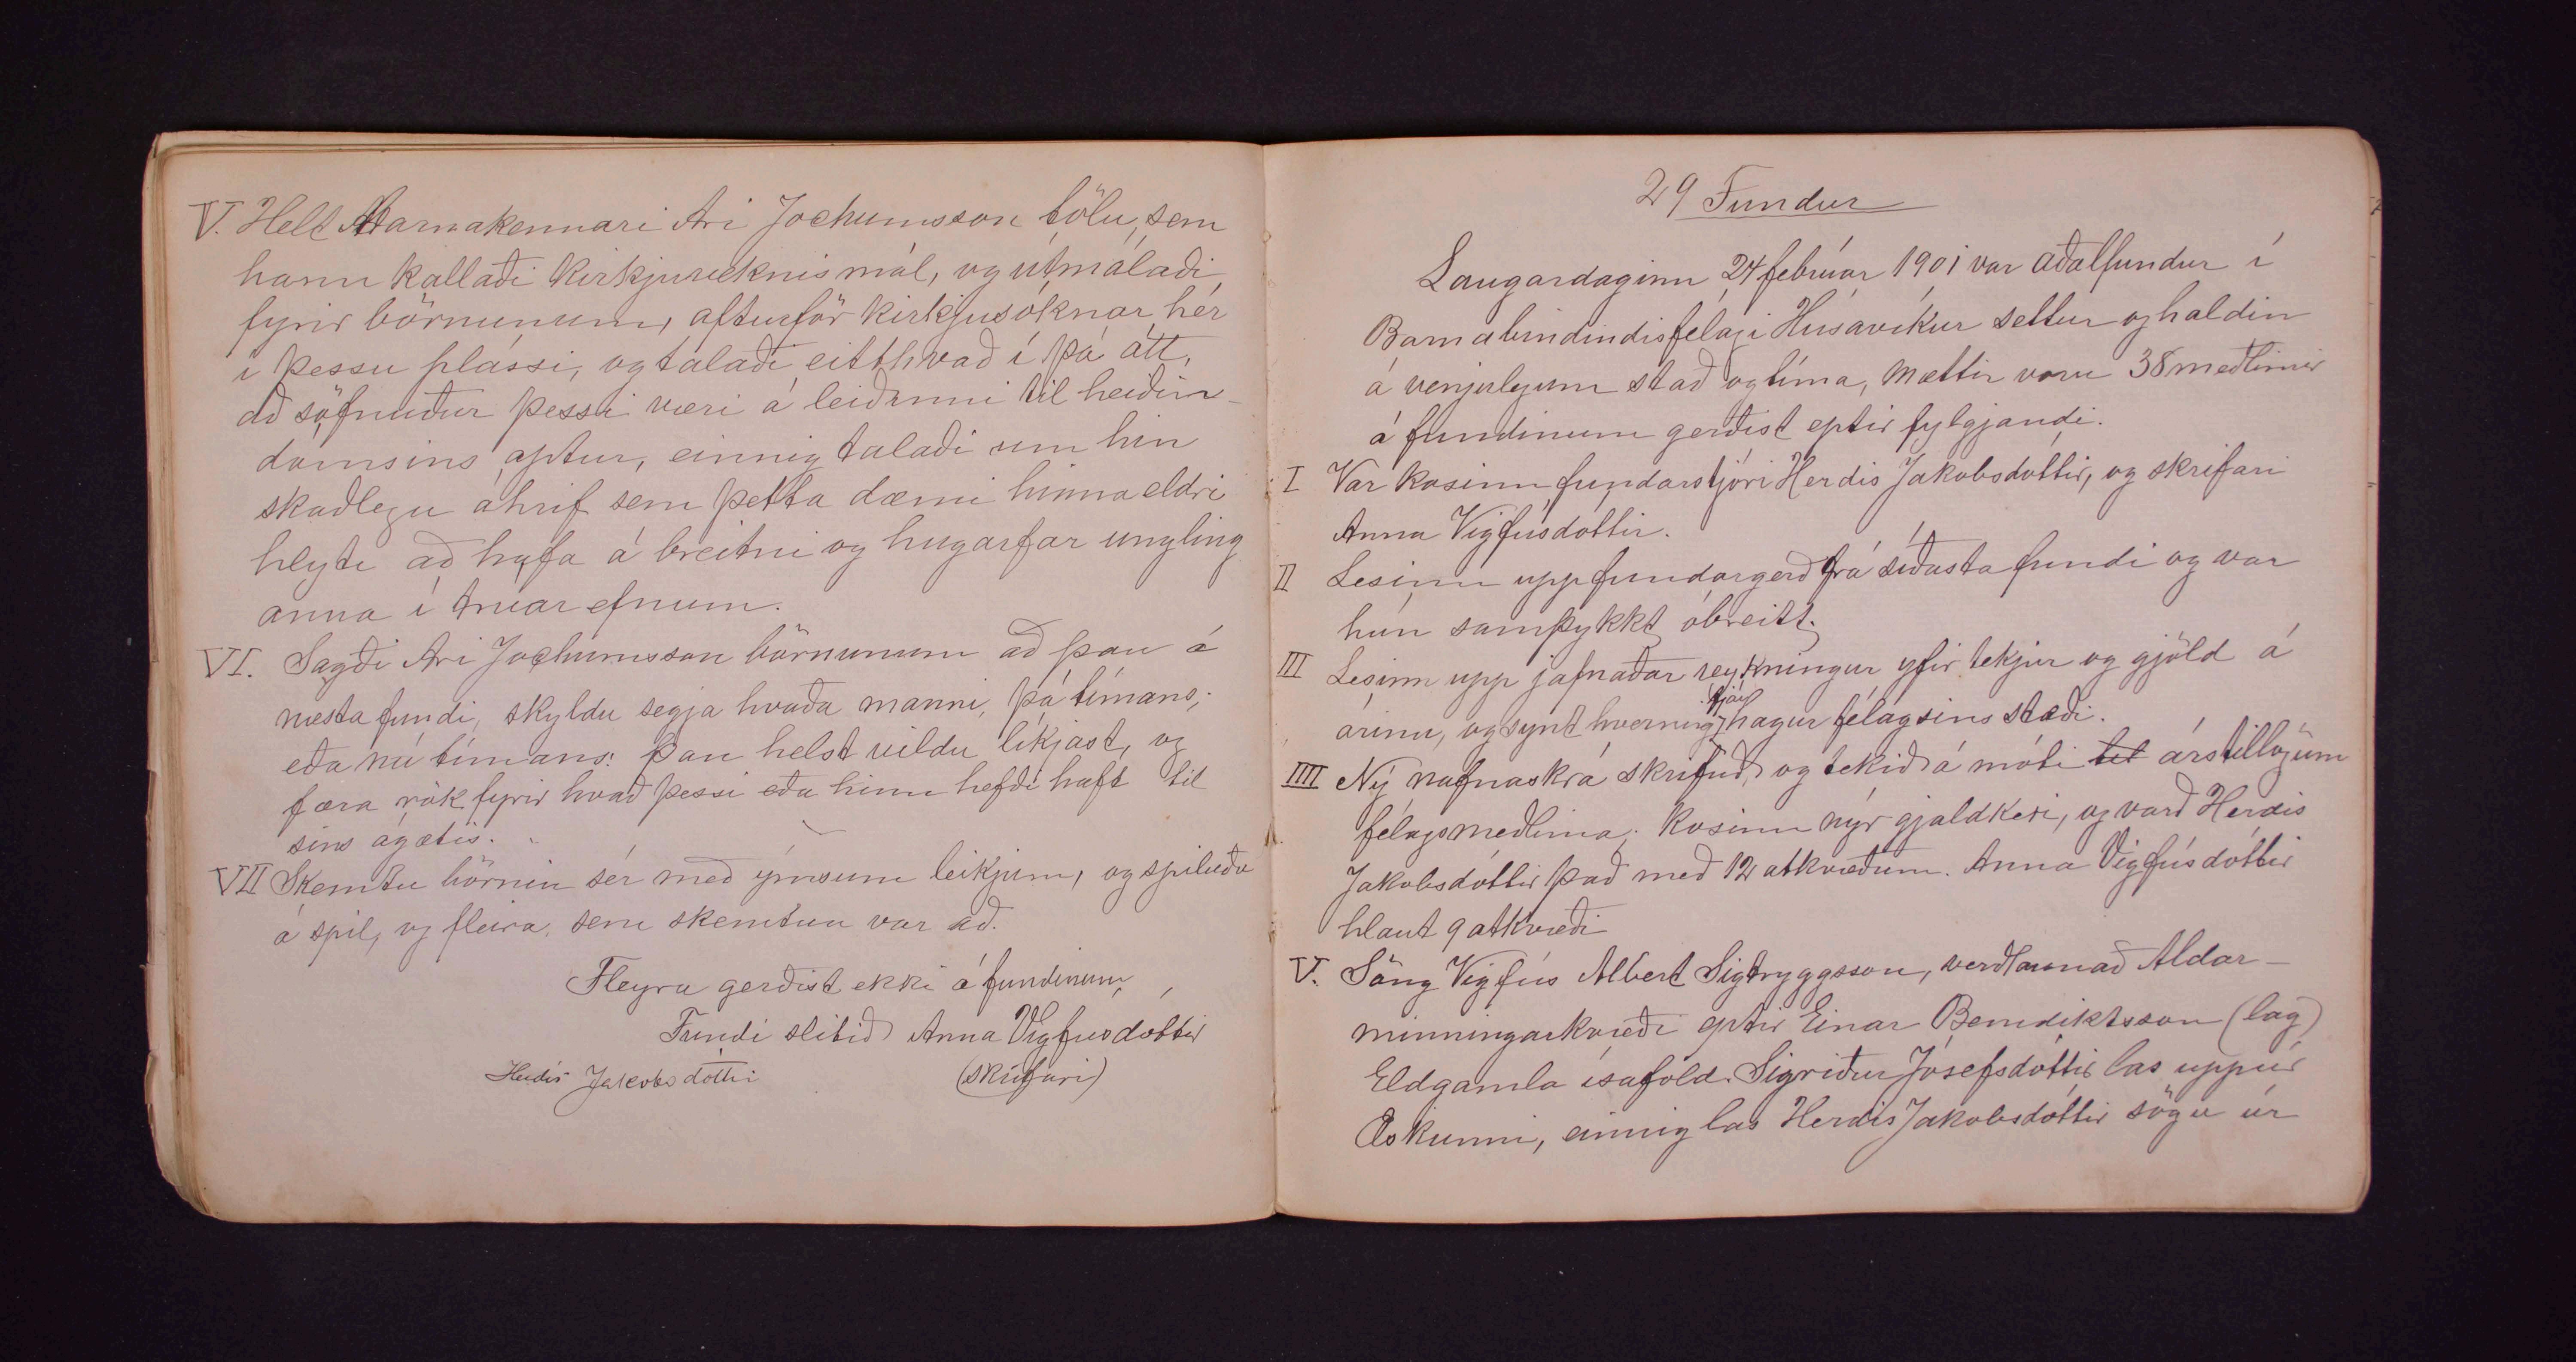 V. Helt Barnakennari Ari Jochumsson tölu, sem
hann kallaði kirkjuræknis mál, og útmálaði
fyrir börnunum, afturför kirkjusóknar hér
í þessu plássi, og talaði eitthvað í þá átt,
að söfnuður þessi væri á leiðinni til heiðin-
dómsins aptur, einnig talaði um hin
skaðlegu áhrif sem þetta dæmi hinna eldri
hlyti að hafa á breitni og hugarfar ungling
anna í trúar efnum.
VI. Sagði Ari Jochumsson börnunum að þau á
næsta fundi, skyldu segja hvaða manni, þá tímans,
eða nú tímans: þau helst vildu líkjast, og
færa rök fyrir hvað þessi eða hinn hefði haft til
síns ágætis.
VII Skemtu börnin sér með ýmsum leikjum, og spiluðu
á spil, og fleira, sem skemtun var að.
Fleyra gerðist ekki á fundinum,
Fundi slitið Anna Vigfúsdóttir
Herdís Jakobsdóttir (skrifari)
29 Fundur
Laugardaginn 24 febrúar 1901 var aðalfundur í
Barnabindindisfélagi Húsavíkur settur og haldin
á venjulegum stað og tíma, mættir voru 38 meðlimir
á fundinum gerðist eptir fylgjandi.
I Var kosinn fundarstjóri Herdís Jakobsdóttir, og skrifari
Anna Vigfúsdóttir.
II Lesinn upp fundargerð frá síðasta fundi og var
hún samþykkt óbreitt.
III Lesinn upp jafnaðar reykningur yfir tekjur og gjöld á
árinu, og synt hvernig fjár hagur félagsins stæði.
IIII Ný nafnaskrá skrifuð, og tekið á móti til árstillögum
félagsmeðlima. Kosinn nýr gjaldkeri, og varð Herdís
Jakobsdóttir það með 12 atkvæðum. Anna Vigfúsdóttir
hlaut 9 atkvæði
V. Söng Vigfús Albert Sigtryggsson, verðlaunað Aldar-
minningarkvæði eptir Einar Benidiktsson (lag)
Eldgamla ísafold. Sigríður Jósefsdóttir las uppúr
Æskunni, einnig las Herdís Jakobsdóttir sögu úr